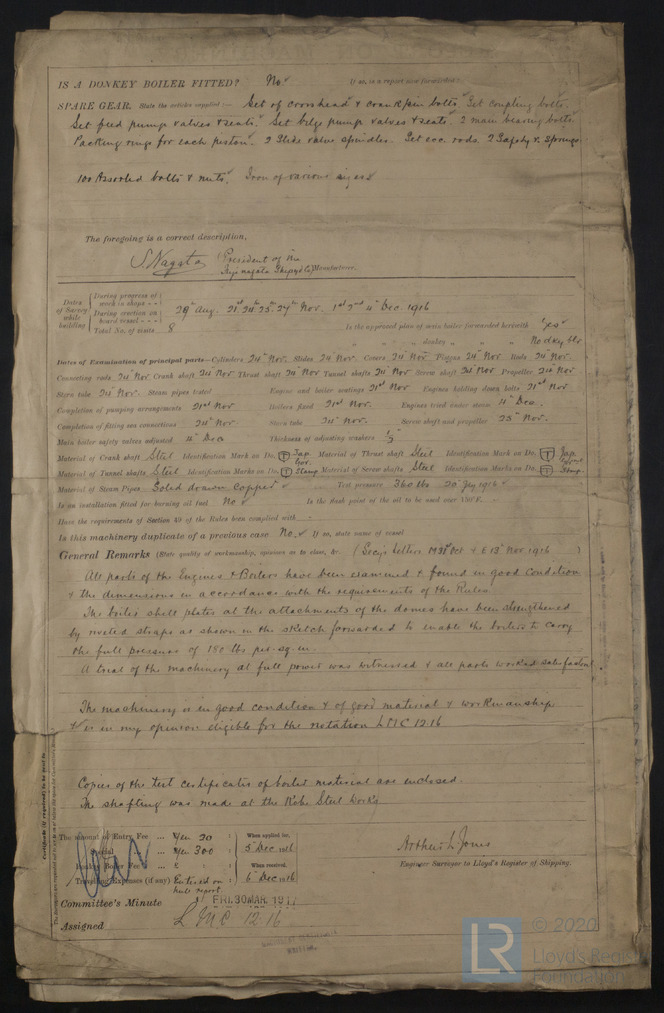 IS A DONKEY BOILER FITTED? No If so, is a report now forwarded?
SPARE GEAR. State the articles supplied:— Set of crosshead & crank pin bolts. Set coupling bolts.
Set feed pump valves & seats. Set bilge pump valves & seats. 2 main bearing bolts.
Packing rings for each piston. 2 Slide valve spindles. Set ecc. rods. 2 Safety v. Springs
100 Assorted bolts & nuts. Iron of various sizes
The foregoing is a correct description,
S. Nagata President of the
Manufacturer.
Dates of Survey while building
During progress of work in shops - -
During erection on board vessel - - -
Total No. of visits 8
29th Aug. 21st 24th 25th 27th Nov. 1st 2nd 4th Dec. 1916
Is the approved plan of main boiler forwarded herewith Yes
" " " donkey " " " No dky blr
Dates of Examination of principal parts—Cylinders 24th Nov. Slides 24 Nov. Covers 24 Nov. Pistons 24th Nov. Rods 24 Nov.
Connecting rods 24th Nov Crank shaft 24th Nov Thrust shaft 24th Nov Tunnel shafts 24th Nov Screw shaft 24 Nov Propeller 24th Nov
Stern tube 24 Nov. Steam pipes tested Engine and boiler seatings 21st Nov Engines holding down bolts 21st Nov
Completion of pumping arrangements 21st Nov Boilers fixed 21st Nov. Engines tried under steam 4th Dec.
Completion of fitting sea connections 24th Nov Stern tube 24th Nov. Screw shaft and propeller 25th Nov.
Main boiler safety valves adjusted 4th Dec Thickness of adjusting washers
Material of Crank shaft Steel Identification Mark on Do. Jap. Gov. Material of Thrust shaft Steel Identification Mark on Do. Jap.
Material of Tunnel shafts Steel Identification Marks on Do. Stamp Material of Screw shafts Steel Identification Marks on Do. Stamp.
Material of Steam Pipes Solid drawn copper Test pressure 360 lbs
Is an installation fitted for burning oil fuel No Is the flash point of the oil to be used over 150°F.
Have the requirements of Section 49 of the Rules been complied with
Is this machinery duplicate of a previous case No. If so, state name of vessel
General Remarks (State quality of workmanship, opinions as to class, &c. (Secy's letters 31st Oct & E 13th Nov 1916 )
All parts of the Engines & Boilers have been examined & found in good condition
& the dimensions in accordance with the requirements of the Rules.
The boiler shell plates at the attachments of the domes have been strengthened
by riveted straps as shown in the sketch forwarded to enable the boilers to carry
the full pressure of 180 lbs per sq. in.
A trial of the machinery at full power was witnessed & all parts worked
The machinery is in good condition & of good material & workmanship
& is in my opinion eligible for the notation LMC 12.16
Copies of the test certificates of boiler material are enclosed.
The shafting was made at the Kobe Steel Works
The amount of Entry Fee ... Yen 20 : When applied for,
Special ... Yen 300 : 5 Dec 1916
Donkey Boiler Fee ... £ : When received,
Travelling Expenses (if any) Entered on hull report. 6 Dec 1916
Arthur L. Jones
Engineer Surveyor to Lloyd's Register of Shipping.
Committee's Minute FRI. 30 MAR. 1917
Assigned L M C 12.16
LR © 2020
Lloyd's Register
Foundation